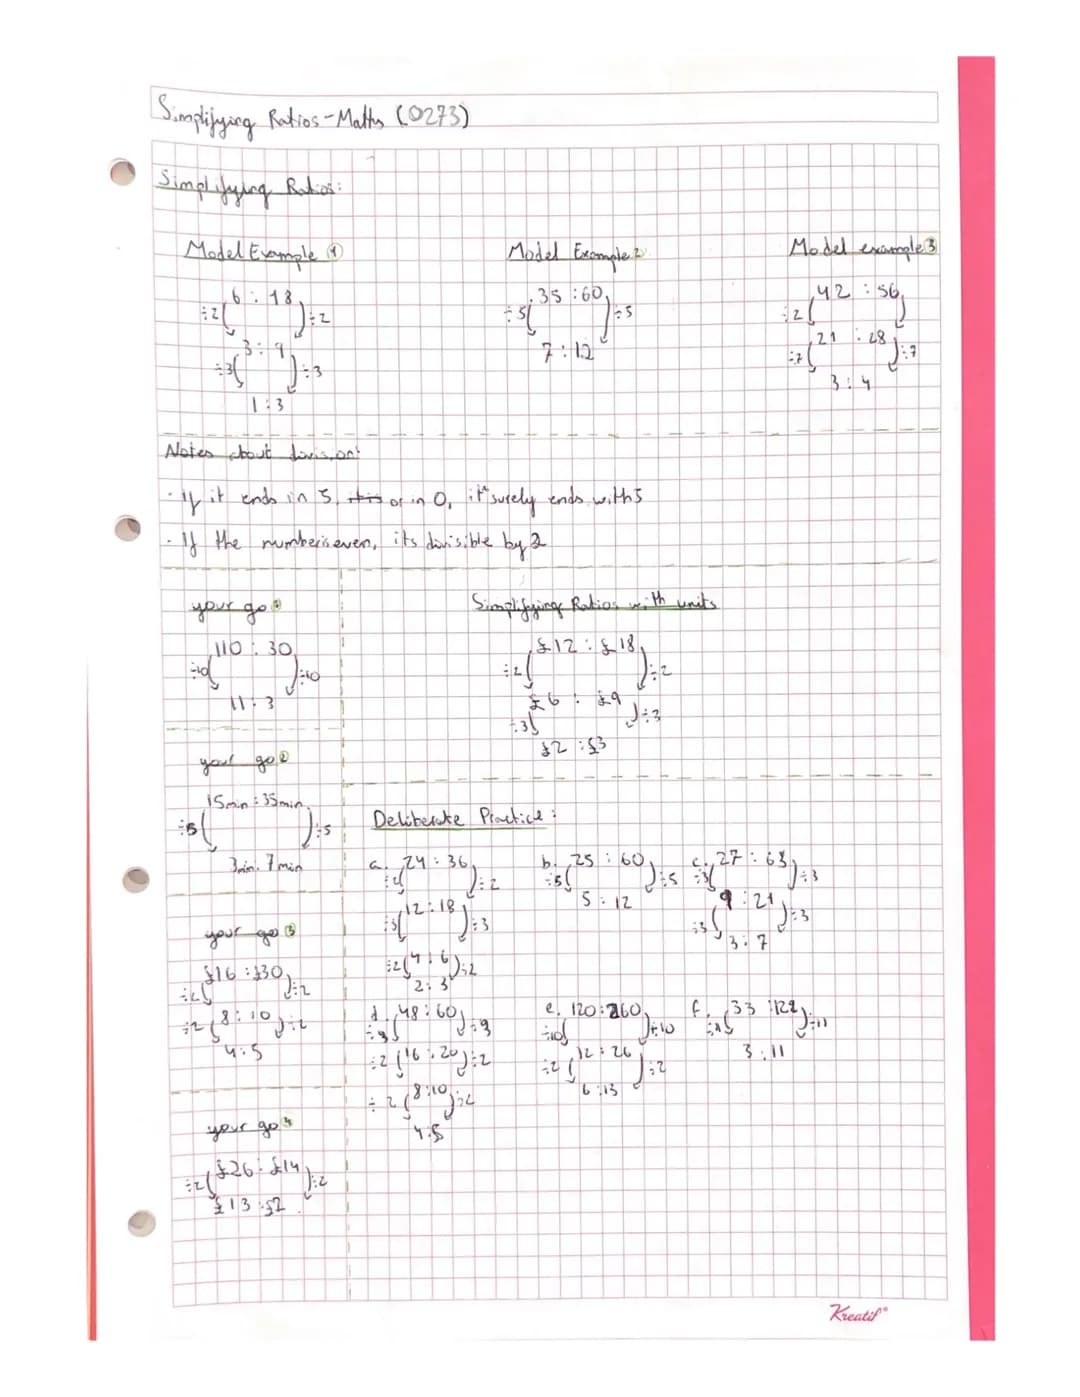 Simplifying Ratios - Maths (0273)
Simplifying Ratios:
Model Example 1
6 : 18
÷2 ÷2
3 : 9
÷3 ÷3
1 : 3
Model Example 2
35 : 60
÷5 ÷5
7 : 12
Model example 3
42 : 56
÷2
21 : 28
÷7 ÷7
3 : 4
Notes about division:
· If it ends in 5, or in 0, it surely ends with 5
· If the number is even, its divisible by 2
your go 1
110 : 30
÷10 ÷10
11 : 3
your go 2
15min : 35min
÷5 ÷5
3min : 7min
your go 3
£16 : £30
÷2 ÷2
8 : 10
÷2 ÷2
4 : 5
your go 4
£26 : £14
÷2 ÷2
£13 : £2
Simplifying Ratios with units
£12 : £18
÷2 ÷2
£6 : £9
÷3 ÷3
£2 : £3
Deliberate Practice :
a. 24 : 36
÷2 ÷2
12 : 18
÷3 ÷3
4 : 6
÷2 ÷2
2 : 3
b. 25 : 60
÷5 ÷5
5 : 12
c. 27 : 63
÷3 ÷3
9 : 21
÷3 ÷3
3 : 7
d. 48 : 60
16 : 20
÷2 ÷2
8 : 10
÷2 ÷2
4 : 5
e. 120 : 260
÷10 ÷10
12 : 26
÷2 ÷2
6 : 13
f. 33 : 121
÷11
3 : 11
Kreatif